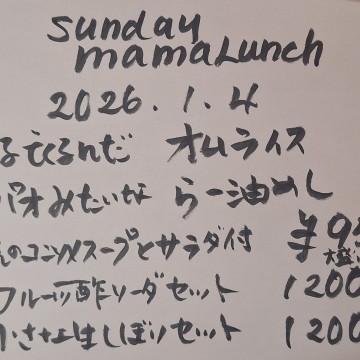 sunday
mamaLunch
2026.1.4
オムライス
みたいな らー油めし
のコンソメスープとサラダ付 ¥9
フルーツ酢ソーダセット 1200
しぼりセット 1200